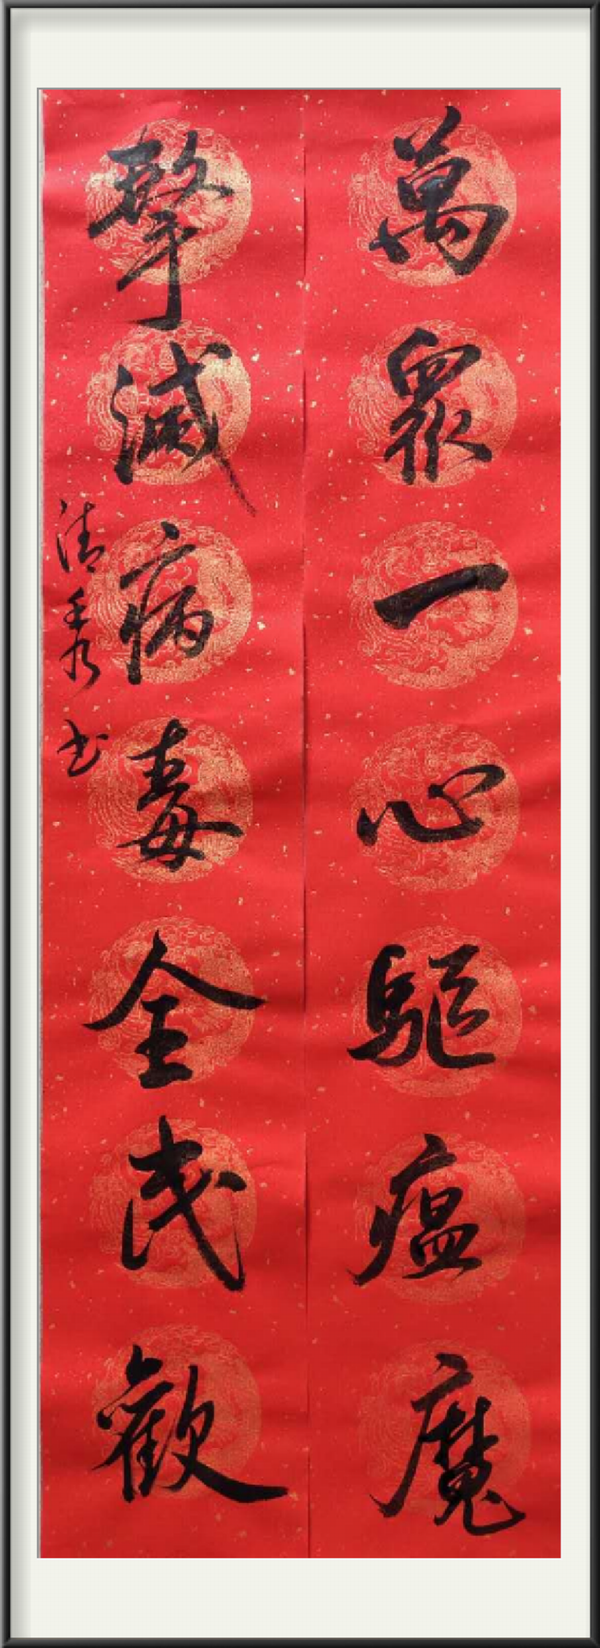 萬眾一心驅瘟魔
擊滅病毒全民歡
清秀书